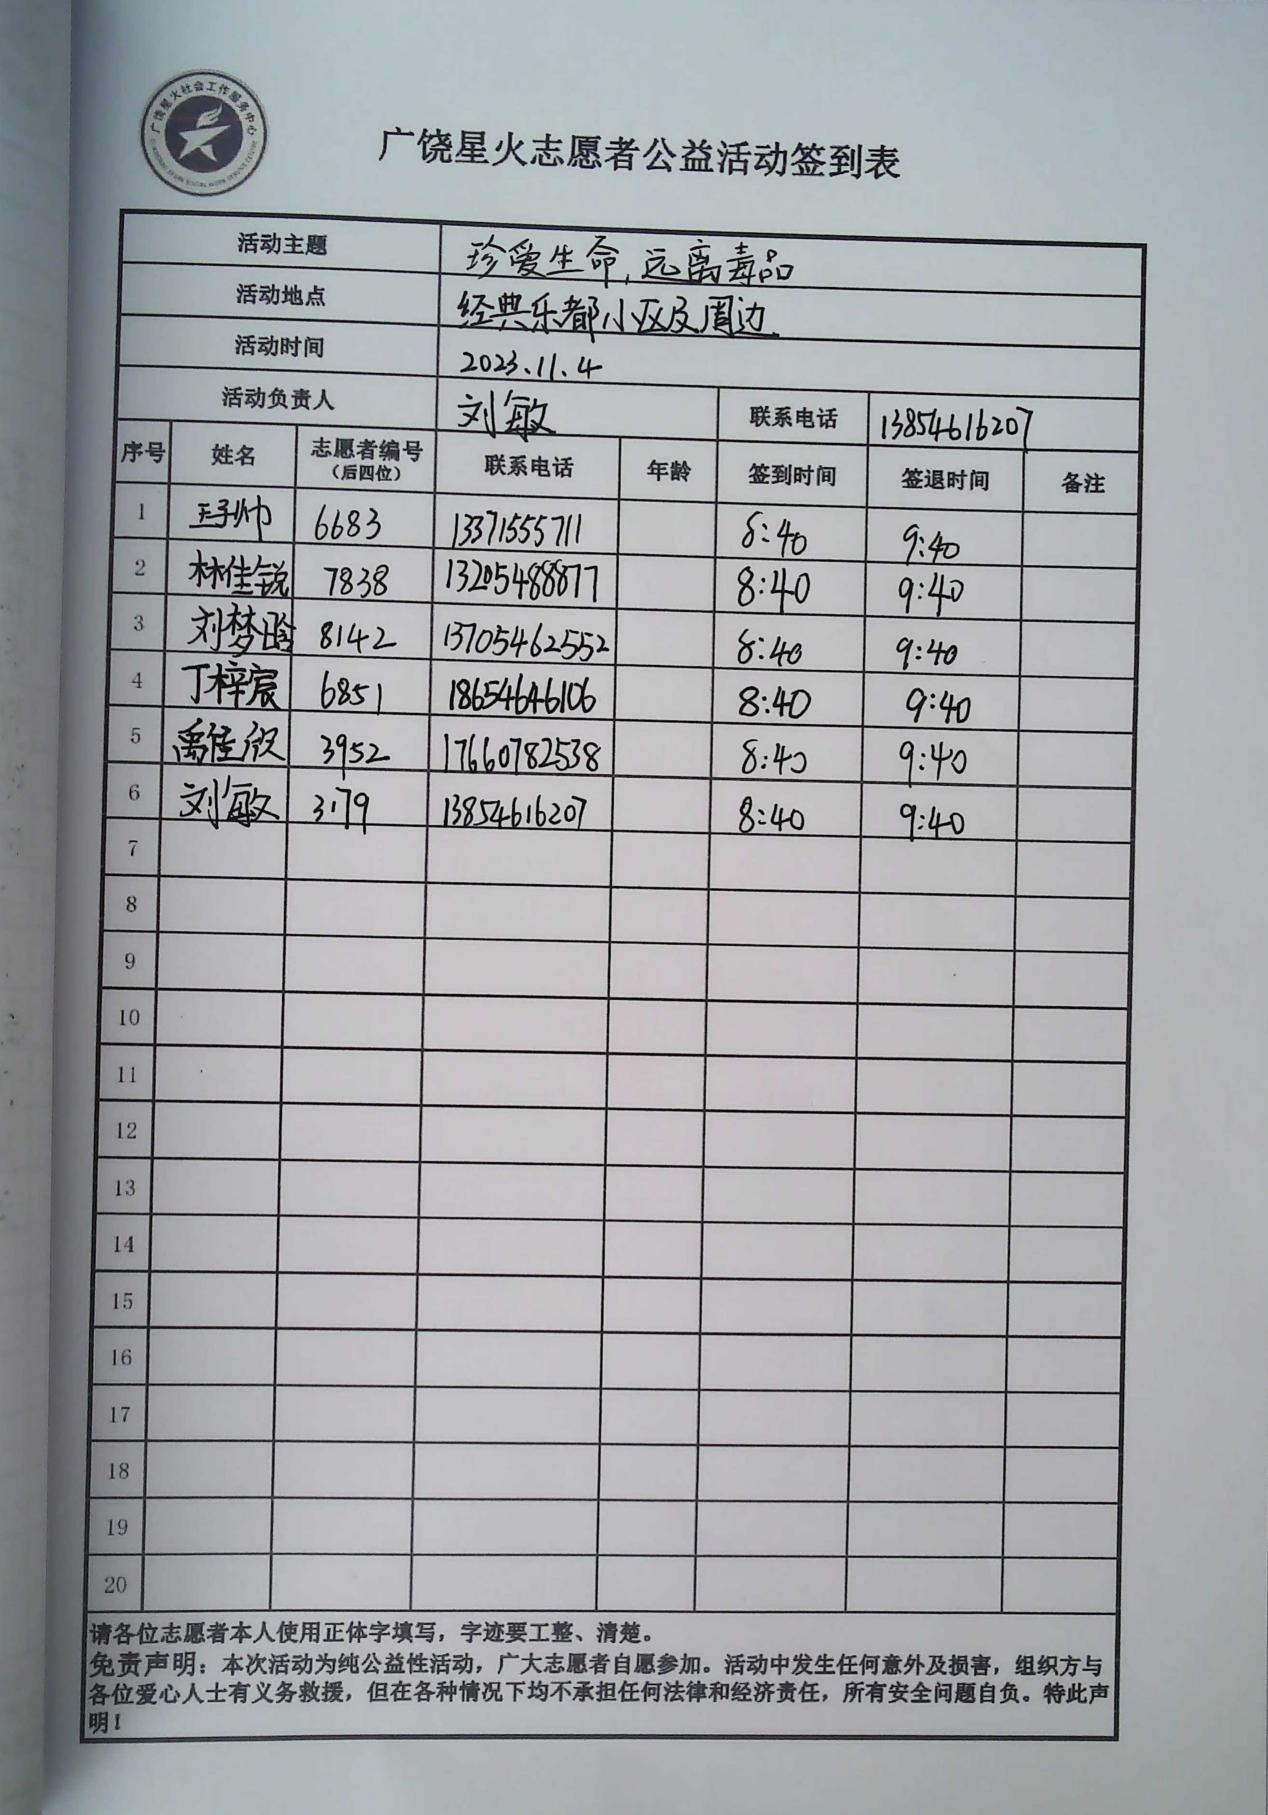 广饶星火社会工作服务中心
广饶星火志愿者公益活动签到表
活动主题 珍爱生命,远离毒品
活动地点 经典乐都小区及周边
活动时间 2023.11.4
活动负责人 刘敏 联系电话 13854616207
序号 姓名 志愿者编号(后四位) 联系电话 年龄 签到时间 签退时间 备注
1 6683 13371555711 8:40 9:40
2 林佳锐 7838 13205488877 8:40 9:40
3 刘梦晗 8142 13705462552 8:40 9:40
4 丁梓宸 6851 18654646106 8:40 9:40
5 禹佳欣 3952 17660782538 8:40 9:40
6 刘敏 3179 13854616207 8:40 9:40
7
8
9
10
11
12
13
14
15
16
17
18
19
20
请各位志愿者本人使用正体字填写，字迹要工整、清楚。
免责声明：本次活动为纯公益性活动，广大志愿者自愿参加。活动中发生任何意外及损害，组织方与
各位爱心人士有义务救援，但在各种情况下均不承担任何法律和经济责任，所有安全问题自负。特此声
明！